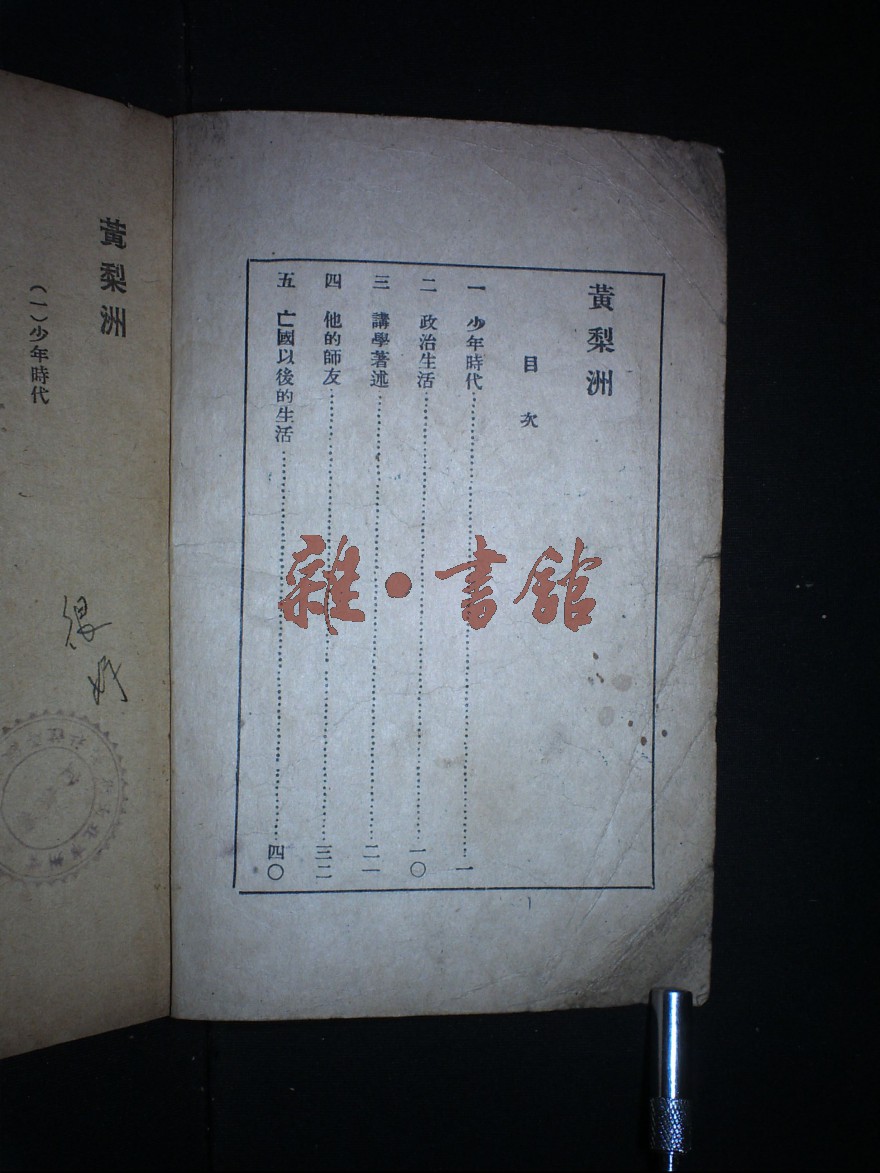 黃梨洲
目次
一 少年時代…………一
二 政治生活…………一〇
三 講學著述…………二一
四 他的師友…………三二
五 亡國以後的生活…………四〇
黃梨洲
(一)少年時代
很好
雜·書館